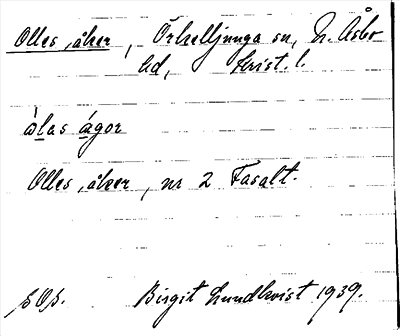 Olles åker, Örkelljunga sn, N. Åsbo
hd, Krist. l.
òlas ágor
Olles åker, nr 2 Fasalt.
Birgit Lundkvist 1939.